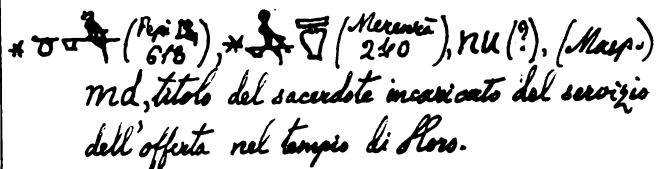 * (Pepi II, 618), * (Merenrà 240), nu (?), (Masp.)
md, titolo del sacerdote incaricato del servizio
dell'offerta nel tempio di Horo.